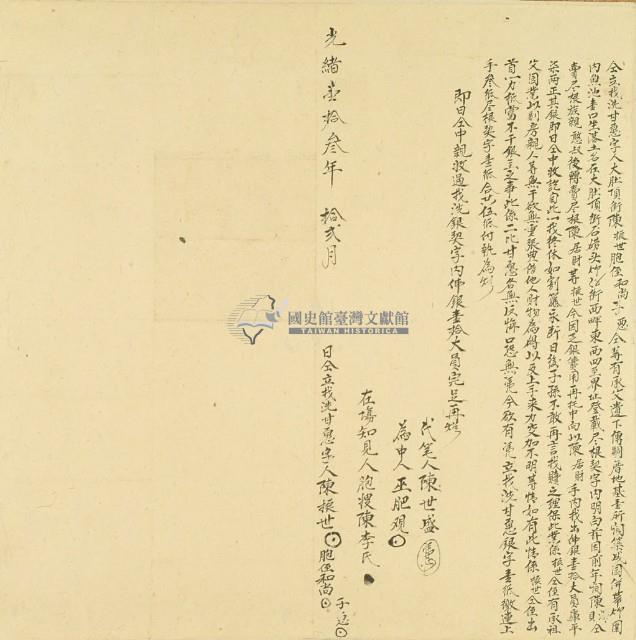 仝立找洗甘愿字人大肚頂街陳振世胞侄和尚 仝等有承父遺下傳鬮厝地基壹所 築成園併草竹圍
內魚池壹口坐落土名在大肚頂街石 頭 街西畔東西四至界址登載尽根契字內明白
尽根族親 叔後轉賣尽根陳居財等振世仝因乏銀費用再托中向以陳居財手內找出佛銀壹拾大員庫平
柒兩正其銀即日仝中收訖自此一找終休如割藤永斷日後子孫不敢再言找贖之理保此業係振世仝侄有承祖
父園業以別房親人等無干欲無重張典借他人財物為碍以及上手來力交加不明等情如有此情係振世仝侄出
首一力抵當不干銀主之事此係二比甘愿各無反悔口恐無凭今欲有凭立找洗甘愿銀字壹紙繳連上
手叁紙尽根契字壹紙合共伍紙付執為炤
即日仝中親收過找洗銀契字內佛銀壹拾大員完足再炤
代筆人陳世盛
為中人巫肥观
在塲知見人胞嫂陳李氏
光緒壹拾叁年 拾弍月 日仝立找洗甘愿字人陳振世 胞侄和尚
國史館臺灣文獻館
TAIWAN HISTORICA